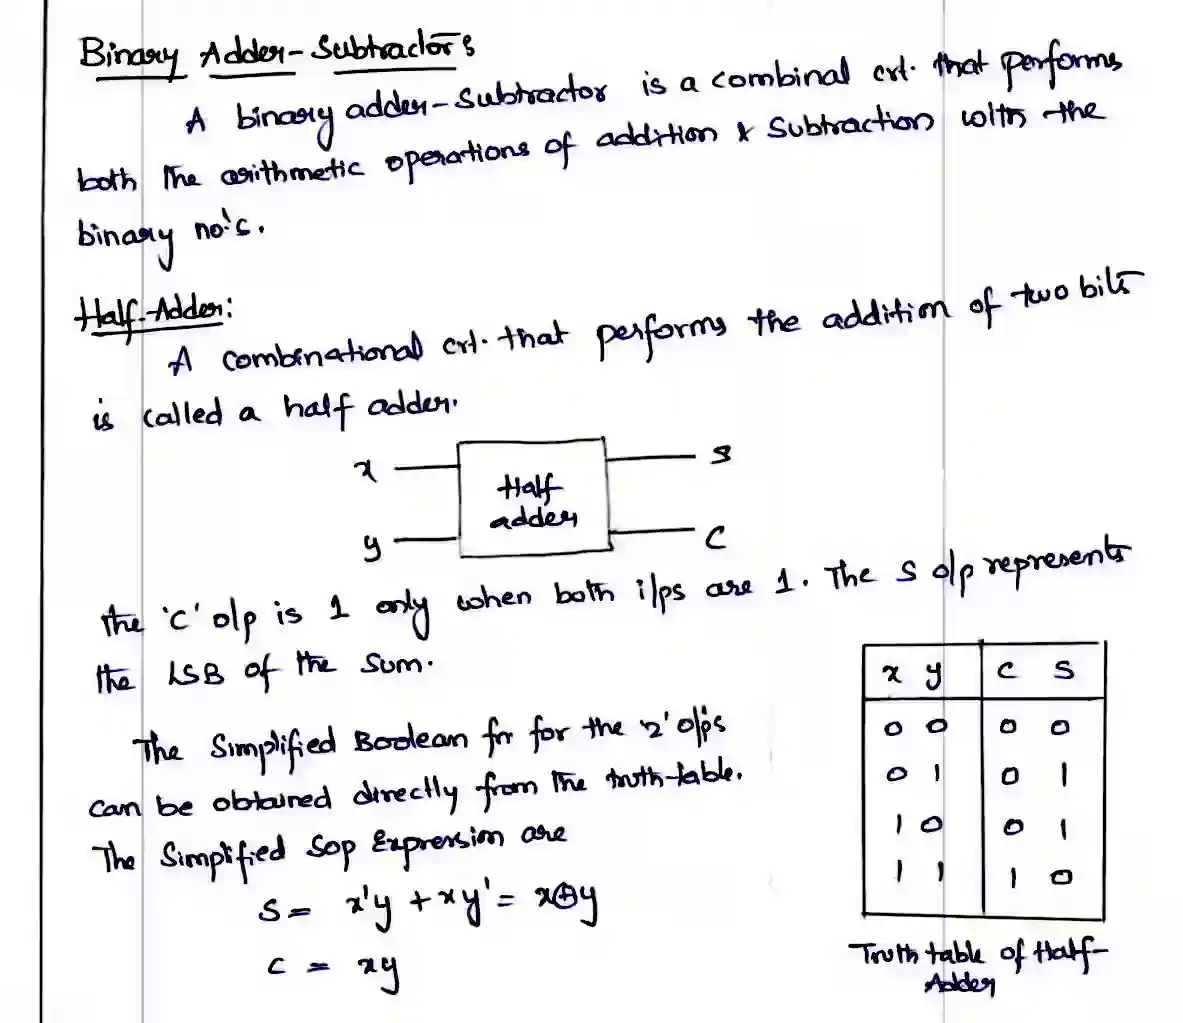 Binary Adder-Subtractors
A binary adder-Subtractor is a combinal crt. that performs
both the arithmetic operations of addition & Subtraction with the
binary no's.
Half-Adder:
A combinational crt. that performs the addition of two bits
is called a half adder.
x Half adder S
y C
the 'C' o/p is 1 only when both i/ps are 1. The S o/p represents
the LSB of the sum.
The Simplified Boolean fn for the '2' o/p's
can be obtained directly from the truth-table.
The Simplified Sop Expression are
S = x'y + xy' = x⊕y
C = xy
x y C S
0 0 0 0
0 1 0 1
1 0 0 1
1 1 1 0
Truth table of Half-
Adder